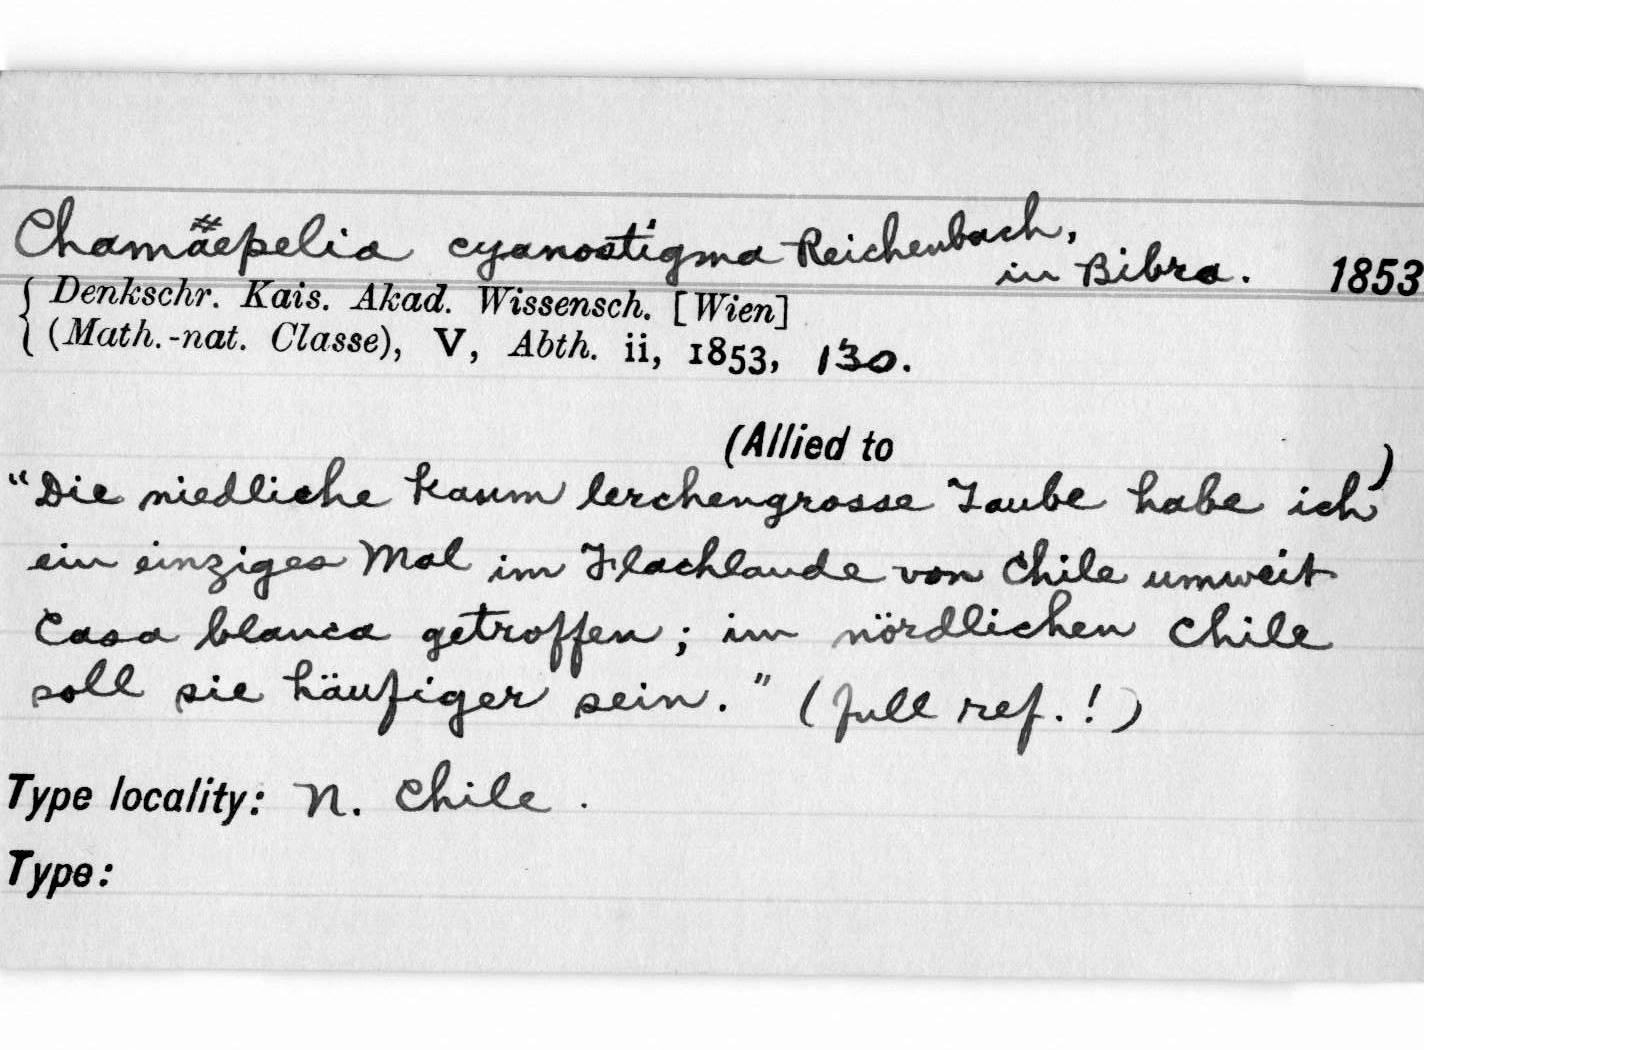 Chamäepelia cyanostigma Reichenbach,
in Bibra. 1853
Denkschr. Kais. Akad. Wissensch. [Wien]
(Math.-nat. Classe), V, Abth. ii, 1853, 130.
(Allied to )
"Die niedliche kaum lerchengrosse Taube habe ich
ein einziges Mal im Flachlande von Chile umweit
Casa blanca getroffen; im nördlichen Chile
soll sie häufiger sein." (full ref.!)
Type locality: N. Chile.
Type: